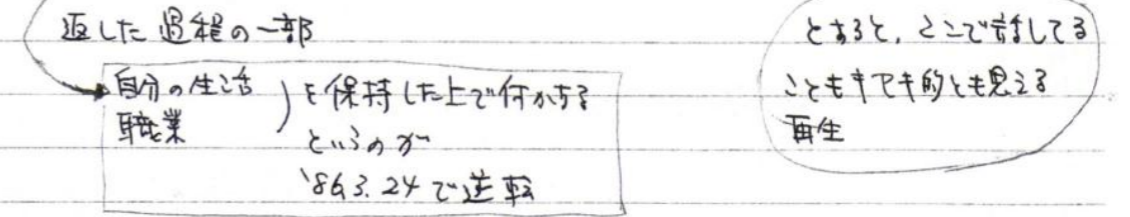 返した過程の一部
自分の生活
職業
を保持した上で何かする
というのが
'86.3.24で逆転
とすると、ここで話してる
こともキセキ的とも思える
再生